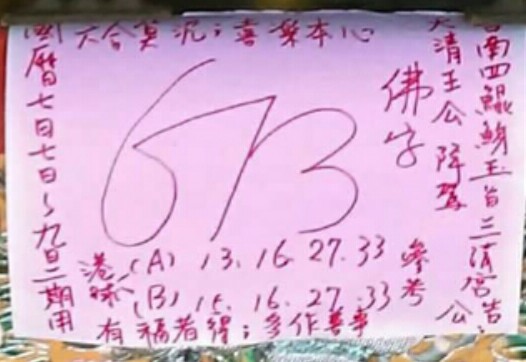 台南四鯤鯓王首三清宮吉
大清王公降駕
公
佛字
六合莫沉；喜樂本心
國曆七日七日~九日二期用
港球
(A) 13.16.27.33
(B) 15.16.27.33
參考
有福者得；多作善事